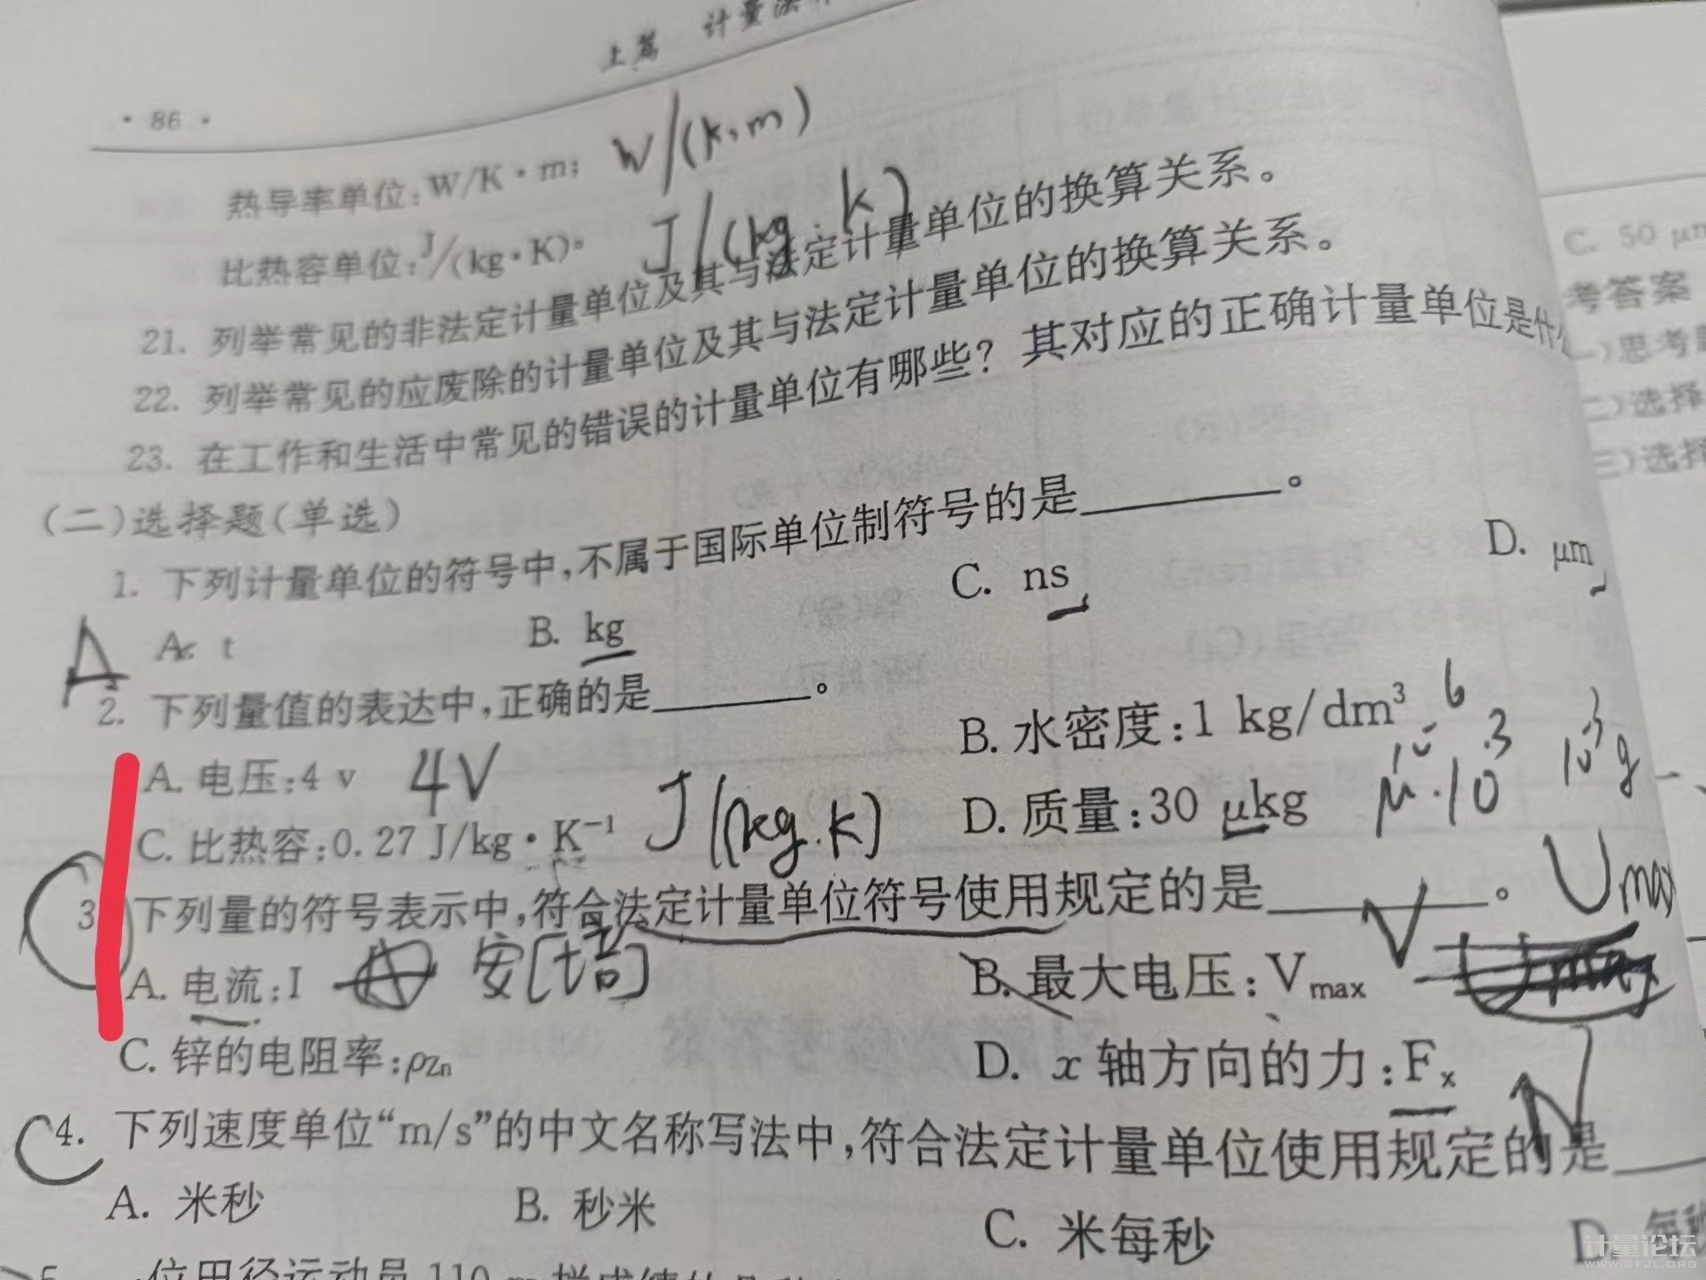 上篇 计量法
· 86 ·
热导率单位:W/K·m; W/(K·m)
比热容单位:J/(kg·K)。 J/(kg·K)
21. 列举常见的非法定计量单位及其与法定计量单位的换算关系。
22. 列举常见的应废除的计量单位及其与法定计量单位的换算关系。
23. 在工作和生活中常见的错误的计量单位有哪些? 其对应的正确计量单位是什
(二)选择题(单选)
1. 下列计量单位的符号中,不属于国际单位制符号的是________。
A A. t B. kg C. ns D. μm
2. 下列量值的表达中,正确的是________。
A. 电压:4 v 4V B. 水密度:1 kg/dm³
C. 比热容:0.27 J/kg·K⁻¹ J/(kg.K) D. 质量:30 μkg
C 3 下列量的符号表示中,符合法定计量单位符号使用规定的是________。 Umax
A. 电流:I 安[培] B. 最大电压:Vmax
C. 锌的电阻率:ρZn D. x 轴方向的力:Fx N
C 4. 下列速度单位“m/s”的中文名称写法中,符合法定计量单位使用规定的是
A. 米秒 B. 秒米 C. 米每秒 D. 每秒
位田径运动员 110 m
C. 50 μm
考答案
)思考
二)选择
三)选择
计量论坛
WWW.GFJL.ORG